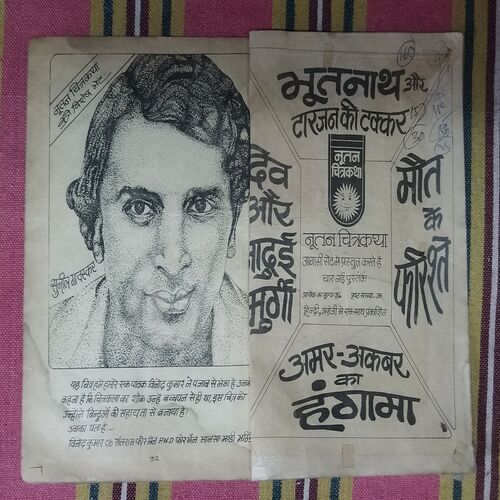 नूतन चित्रकथा
की विशेष भेंट
सुनील गावस्कर
यह चित्र हमें हमारे एक पाठक विनोद कुमार ने पंजाब से भेजा है उनका
कहना है कि चित्रकला का शौक उन्हें बचपन से ही था, इस चित्र को
उन्होंने बिन्दुओं की सहायता से बनाया है।
उनका पता है:-
विनोद कुमार C/o संतराम फोर मैन P.W.D फोर मैन मानसा मंडी
32
भूतनाथ और
टारजन की टक्कर
नूतन
चित्रकथा
देव
और
जादुई
मुर्गा
मौत
के
फरिश्ते
नूतन चित्रकथा
आगामी सैट में प्रस्तुत करते हैं
चार नई पुस्तकें
प्रत्येक का मूल्य पृष्ठ संख्या
हिन्दी, अंग्रेजी में एक साथ प्रकाशित
अमर-अकबर
का
हंगामा